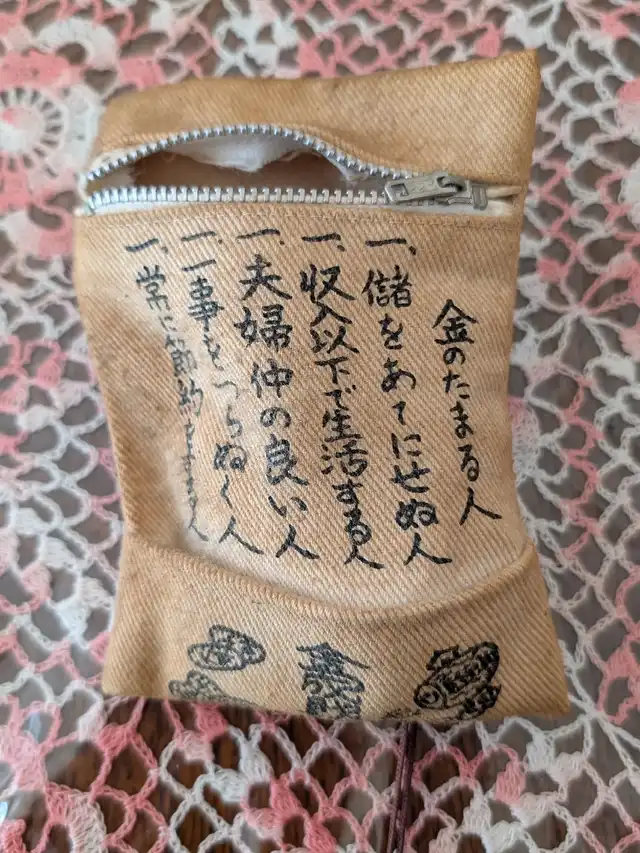 金のたまる人
一、儲をあてにせぬ人
一、収入以下で生活する人
一、夫婦仲の良い人
一、一事をつらぬく人
一、常に節約をする人